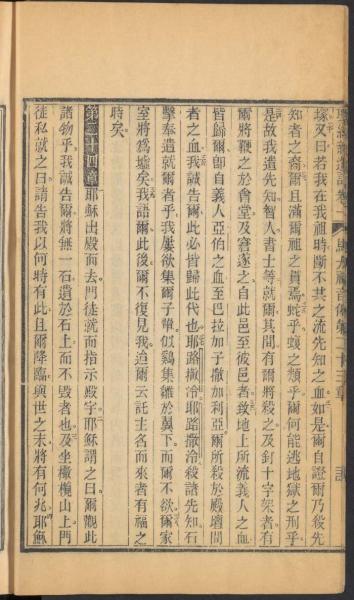 塚又曰若我在我祖時斷不共之流先知之血如是爾自證爾乃殺先
知者之裔爾且滿爾祖之貫焉蛇乎蝮之類乎爾何能逃地獄之刑乎
是故我遣先知智人書士等就爾其間有爾將殺之及釘十字架者有
爾將鞭之於會堂及窘逐之自此邑至彼邑者致地上所流義人之血
皆歸爾卽自義人亞伯之血至巴拉加子撒加利亞爾所殺於殿壇間
者之血我誠告爾此必皆歸此代也耶路撒冷耶路撒冷殺諸先知石
擊奉遣就爾者乎我屢欲集爾子輩似鷄集雛於翼下而爾不欲爾家
室將爲墟矣我語爾此後不復見我迨爾云託主名而來者有福之
時矣
第二十四章耶穌出殿而去門徒就而指示殿宇耶穌謂之曰爾觀此
諸物乎我誠告爾將無一石遺於石上而不毀者也及坐橄欖山上門
徒私就之曰請告我以何時有此且爾降臨與世之末將有何兆耶穌